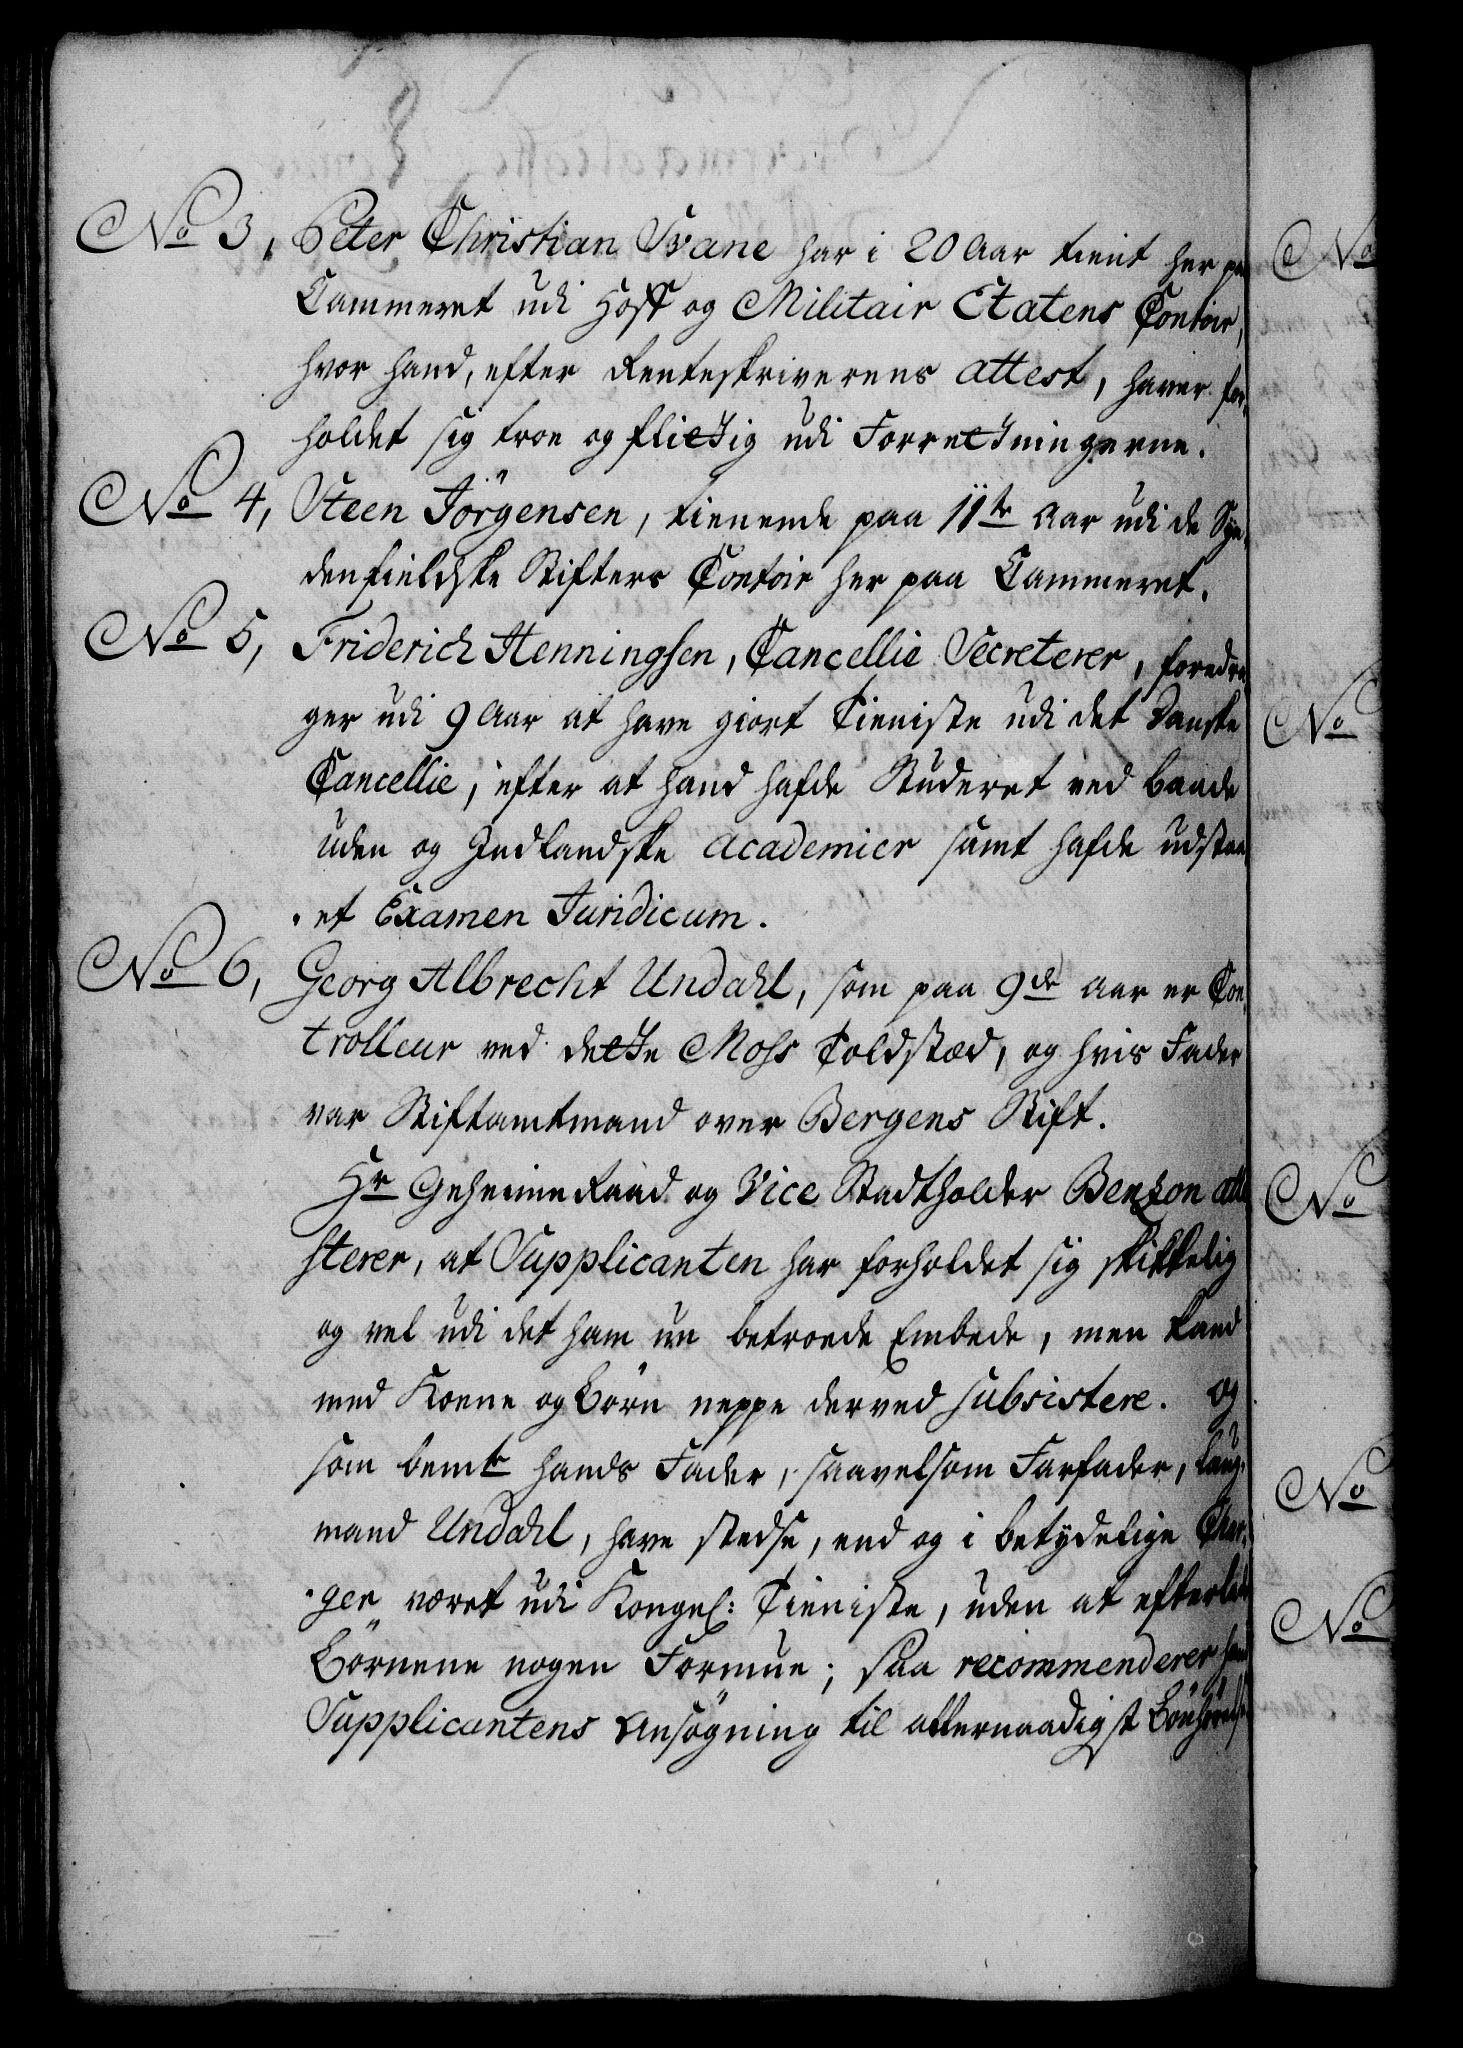 No 3, Peter Christian Svane har i 20 Aar tient her paa
Cammeret udi Hoff og Militair Etatens Contoir,
hvor hand, efter Renteskriverens attest, haver for-
holdet sig troe og flittig udi Forretningerne.
No 4, Steen Jörgensen, tienende paa 11te Aar udi de Syn-
denfieldske Stifters Contoir her paa Cammeret.
No 5, Friderich Henningsen, Cancellie Secreterer, foredra-
ger udi 9 Aar at have giort Tieniste udi det Danske
Cancellie, efter at hand hafde Studeret ved baade
uden og Indlandske academier samt hafde udstaa-
et Examen Juridicum.
No 6, Georg Albrecht Undahl, som paa 9de Aar er Con-
trolleur ved dette Moss Toldstæd, og hvis Fader
var Stiftamtmand over Bergens Stift.
Hr Geheime Raad og Vice Stadtholder Benzon atte-
sterer, at Supplicanten har forholdet sig skikkelig
og vel udi det ham nu betroede Embede, men kand
med Kone og Börn neppe derved subsistere. og
som bemte hands Fader, saavelsom Farfader, Laug-
mand Undahl, have stedse, end og i betydelige Char-
ger været udi Kongel: Tieniste, uden at efterlade
Börnene nogen Formue; saa recommenderer hand
Supplicantens Ansögning til allernaadigst Bönhörelse
No
No
No
No
No